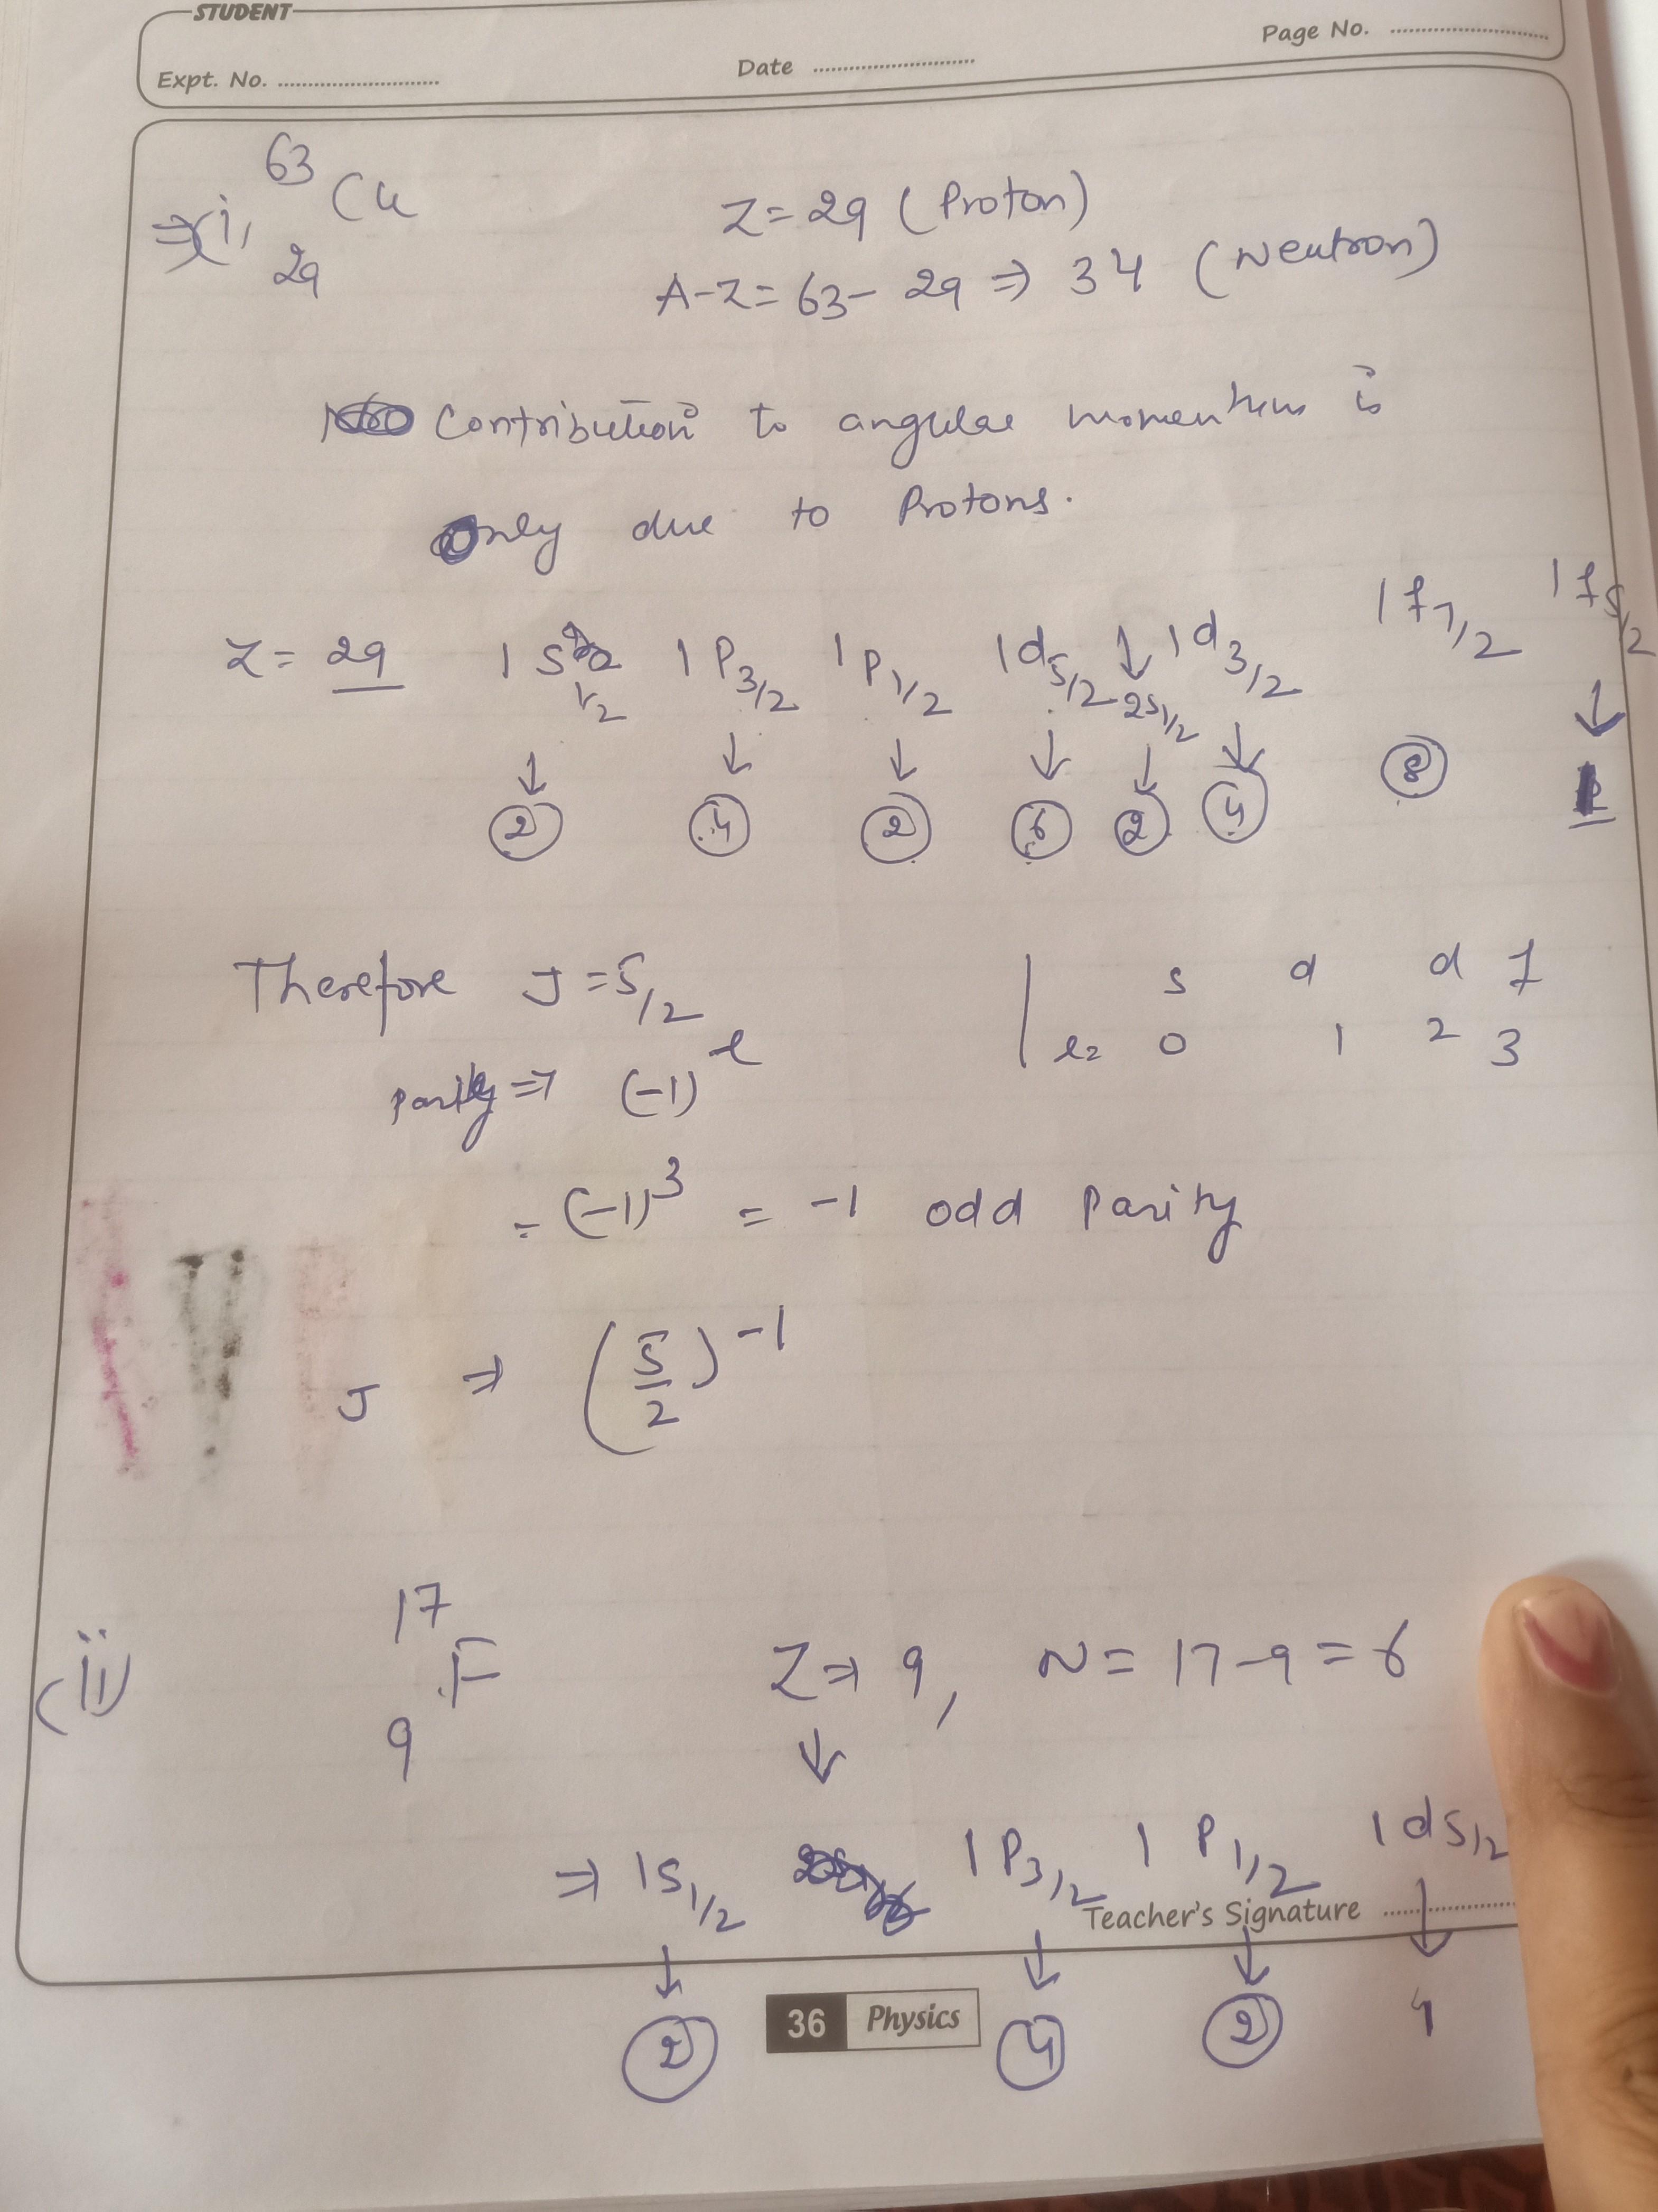 STUDENT
Expt. No. Date Page No.
⇒(i) ⁶³₂₉Cu Z = 29 (Proton)
A-Z = 63 - 29 ⇒ 34 (Neutron)
Contribution to angular momentum is
Only due to Protons.
Z = 29 1S1/2 1P3/2 1P1/2 1d5/2 ↓ 2S1/2 1d3/2 1f7/2 1f5/2
↓ ↓ ↓ ↓ ↓ ↓ ↓
2 4 2 6 2 4 8
Therefore J = 5/2 | s d d f
Parity ⇒ (-1)^l | l= 0 1 2 3
= (-1)³ = -1 odd Parity
J ⇒ (5/2)⁻¹
(ii) ¹⁷₉F Z ⇒ 9, N = 17-9 = 8
↓
⇒ 1S1/2 1P3/2 1P1/2 1d5/2
Teacher's Signature
↓ ↓ ↓ ↓
2 4 2 1
36 Physics